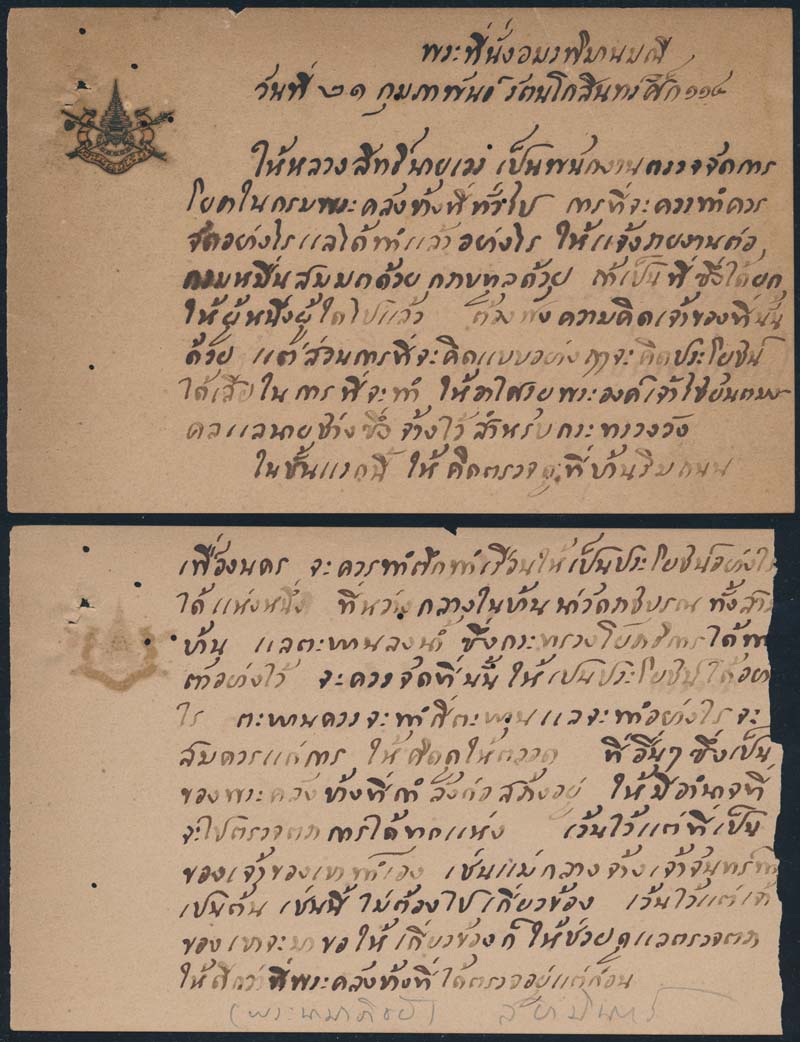 พระที่นั่งอมรพิมานมณี
วันที่ ๒๑ กุมภาพันธ์ รัตนโกสินทรศก ๑๑๔
ให้หลวงสิทธินายเวร เป็นพนักงานตรวจจัดการ
โยธาในกรมพระคลังข้างที่ทั่วไป การที่จะควรทำควร
จัดอย่างไรแลได้ทำแล้วอย่างไร ให้แจ้งรายงานต่อ
กรมหมื่นสมมตด้วย กราบทูลด้วย ถ้าเป็นที่ซึ่งได้ยก
ให้ผู้หนึ่งผู้ใดไปแล้ว ต้องฟังความคิดเจ้าของที่นั้น
ด้วย แต่ส่วนการที่จะคิดแบบอย่าง ฤาจะคิดประโยชน์
ได้เสียในการที่จะทำ ให้อาไศรยพระองค์เจ้าไชยันตมง
คลแลนายช่างซึ่งจ้างไว้สำหรับกระทรวงวัง
ในชั้นแรกนี้ ให้คิดตรวจดูที่บ้านริมถนน
เฟื่องนคร จะควรทำตึกทำเรือนให้เป็นประโยชน์อย่างไร
ได้แห่งหนึ่ง ที่หว่างกลางในบ้านน่าวัดราชบูรณ ทั้งสาม
บ้าน แลตะพานลงน้ำ ซึ่งกระทรวงโยธาธิการได้ทำ
ตัวอย่างไว้ จะควรจัดที่นั้นให้เปนประโยชน์ได้อย่าง
ไร ตะพานควรจะทำสี่ตะพานแลจะทำอย่างไรจะ
สมควรแก่การ ให้คิดดูให้ตลอด ที่อื่นๆ ซึ่งเป็น
ของพระคลังข้างที่กำลังก่อสร้างอยู่ ให้มีอำนาจที่
จะไปตรวจตราการได้ทุกแห่ง เว้นไว้แต่ที่เป็น
ของเจ้าของเขาทำเอง เช่นแม่กลางจ้างเจ้าจันทร์ทำ
เปนต้น เช่นนี้ไม่ต้องไปเกี่ยวข้อง เว้นไว้แต่เจ้า
ของเขาจะมาขอให้เกี่ยวข้อง ก็ให้ช่วยดูแลตรวจตรา
ให้ดีกว่าที่พระคลังข้างที่ได้ตรวจอยู่แต่ก่อน
(พระนามาภิธัย) สยามินทร์